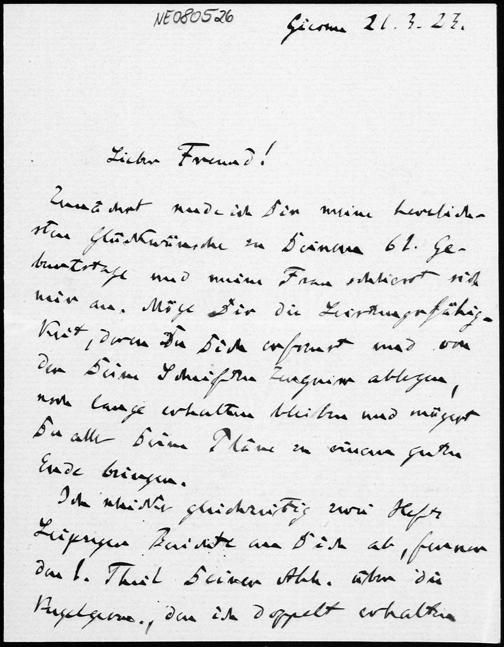 NE080526
Giverne 21.3.23.
Lieber Freund!
Zunächst sende ich Dir meine herzlich-
sten Glückwünsche zu Deinem 61. Ge-
burtstage und meine Frau schliesst sich
mir an. Möge Dir die Leistungsfähig-
keit, deren Du Dich erfreust und von
der Deine Schriften Zeugniss ablegen,
noch lange erhalten bleiben und mögest
Du alle Deine Pläne zu einem guten
Ende bringen.
Ich schicke gleichzeitig zwei Hefte
Leipziger Berichte an Dich ab, ferner
den I. Theil Deiner Abh. über die
Kugelgeom., den ich doppelt erhalten